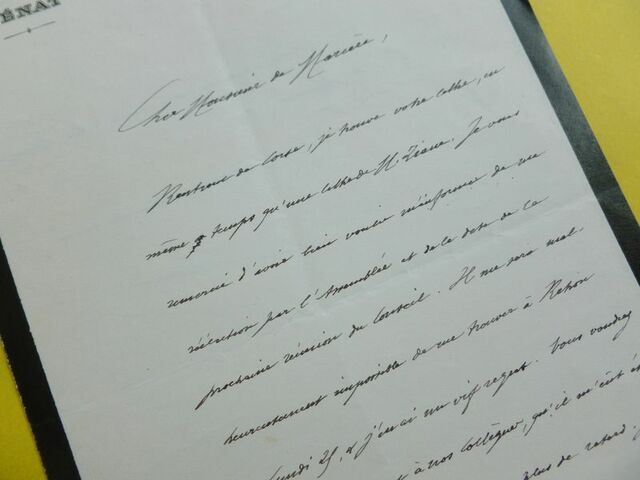 ÉNAT
Cher Monsieur de
Rentrant de Corse, je trouve votre lettre, en
même temps qu'une lettre de M. Je vous
remercie d'avoir bien voulu m'informer de ma
réélection par l'Assemblée et de la date de la
prochaine réunion du Conseil. Il me sera mal-
heureusement impossible de me trouver à
lundi 25, et j'en ai un vif regret. Vous voudrez
à nos Collègues, qu'il m'eût é
plus de retard